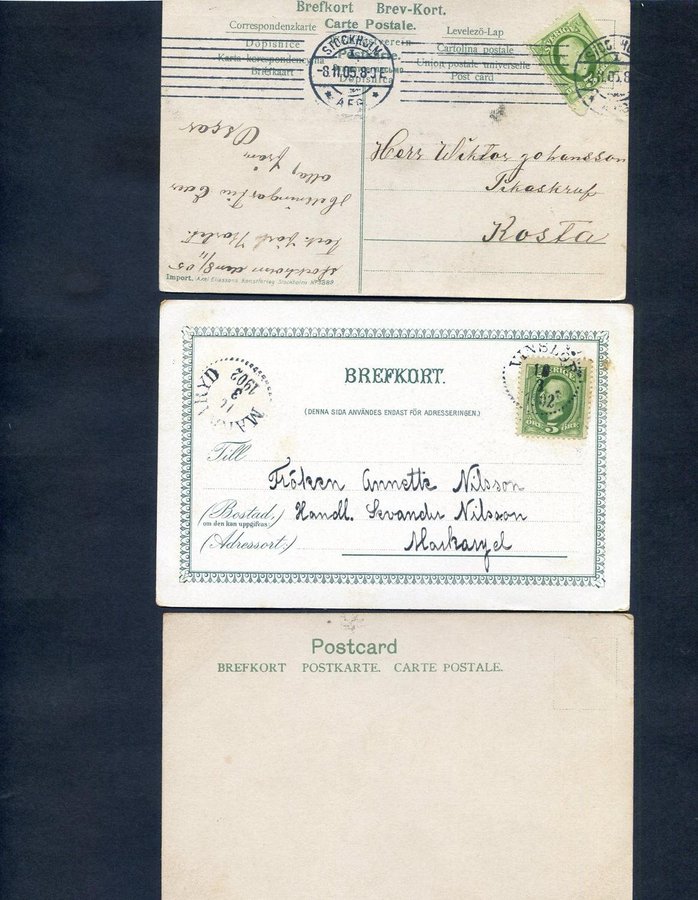 Brefkort Brev-Kort.
Correspondenzkarte Carte Postale. Levelező-Lap
Dopisnice Weltpostverein Cartolina postale
Karta korespondencyjna Postkarte Union postale universelle
Brefkaart Dopisnica Post card
STOCKHOLM
1
-8.11.05.8-9 E
* AFG. *
SVERIGE
Herr Wiktor Johansson
Kosta
Stockholm den 8/11 05
från
Oscar
Import. Axel Eliassons Konstförlag Stockholm Nr 3889
BREFKORT.
(DENNA SIDA ANVÄNDES ENDAST FÖR ADRESSERINGEN.)
3
1902
VINSLÖF
SVERIGE
ÖRE 5 ÖRE
Till
Fröken Annette Nilsson
(Bostad,) Handl. Nilsson
om den kan uppgifvas:
(Adressort:)
Postcard
BREFKORT POSTKARTE. CARTE POSTALE.